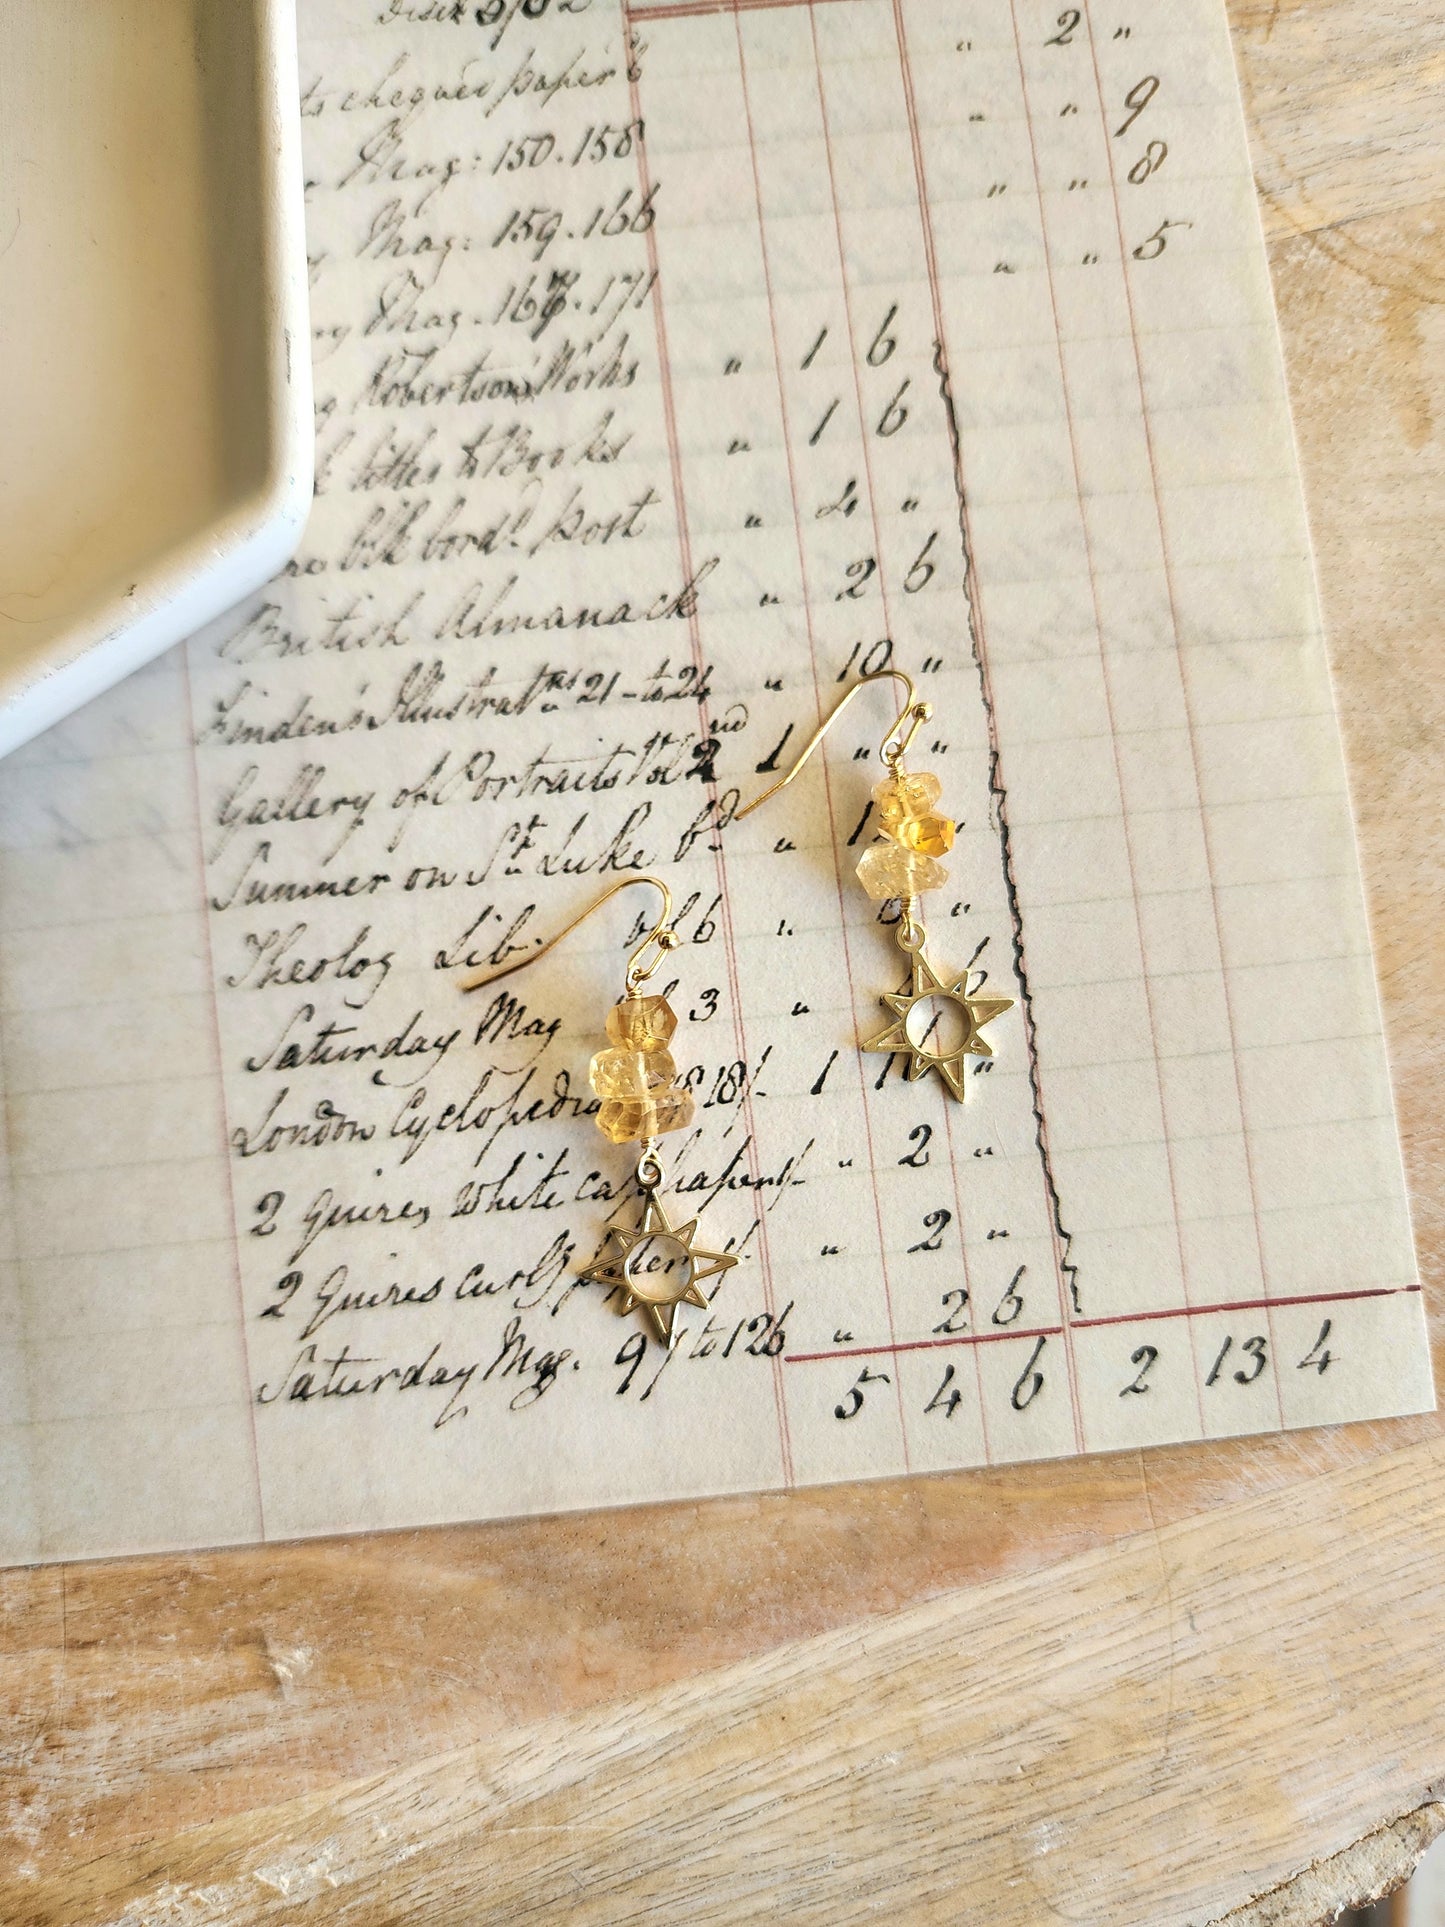 chequed paper 6 " 2 "
Mag: 150.158 " " 9
Mag: 159.166 " " 8
Mag. 167.171 " " 5
Robertson's Works " 1 6
titles to Books " 1 6
blk bord^d. post " 4 "
British Almanack " 2 6
Finden's Illustrat^ns 21 - to 24 " 10 "
Gallery of Portraits Vol 2^nd 1 " "
Summer on S^t. Luke b^d "
Theolog Lib. vol 6 " 6 "
Saturday Mag 3 " 6
London Cyclopedia 18/- 1 "
2 Quires white cap paper 1/- " 2 "
2 Quires curl^g paper 1/- " 2 "
Saturday Mag. 97 to 126 " 2 6
5 4 6 2 13 4